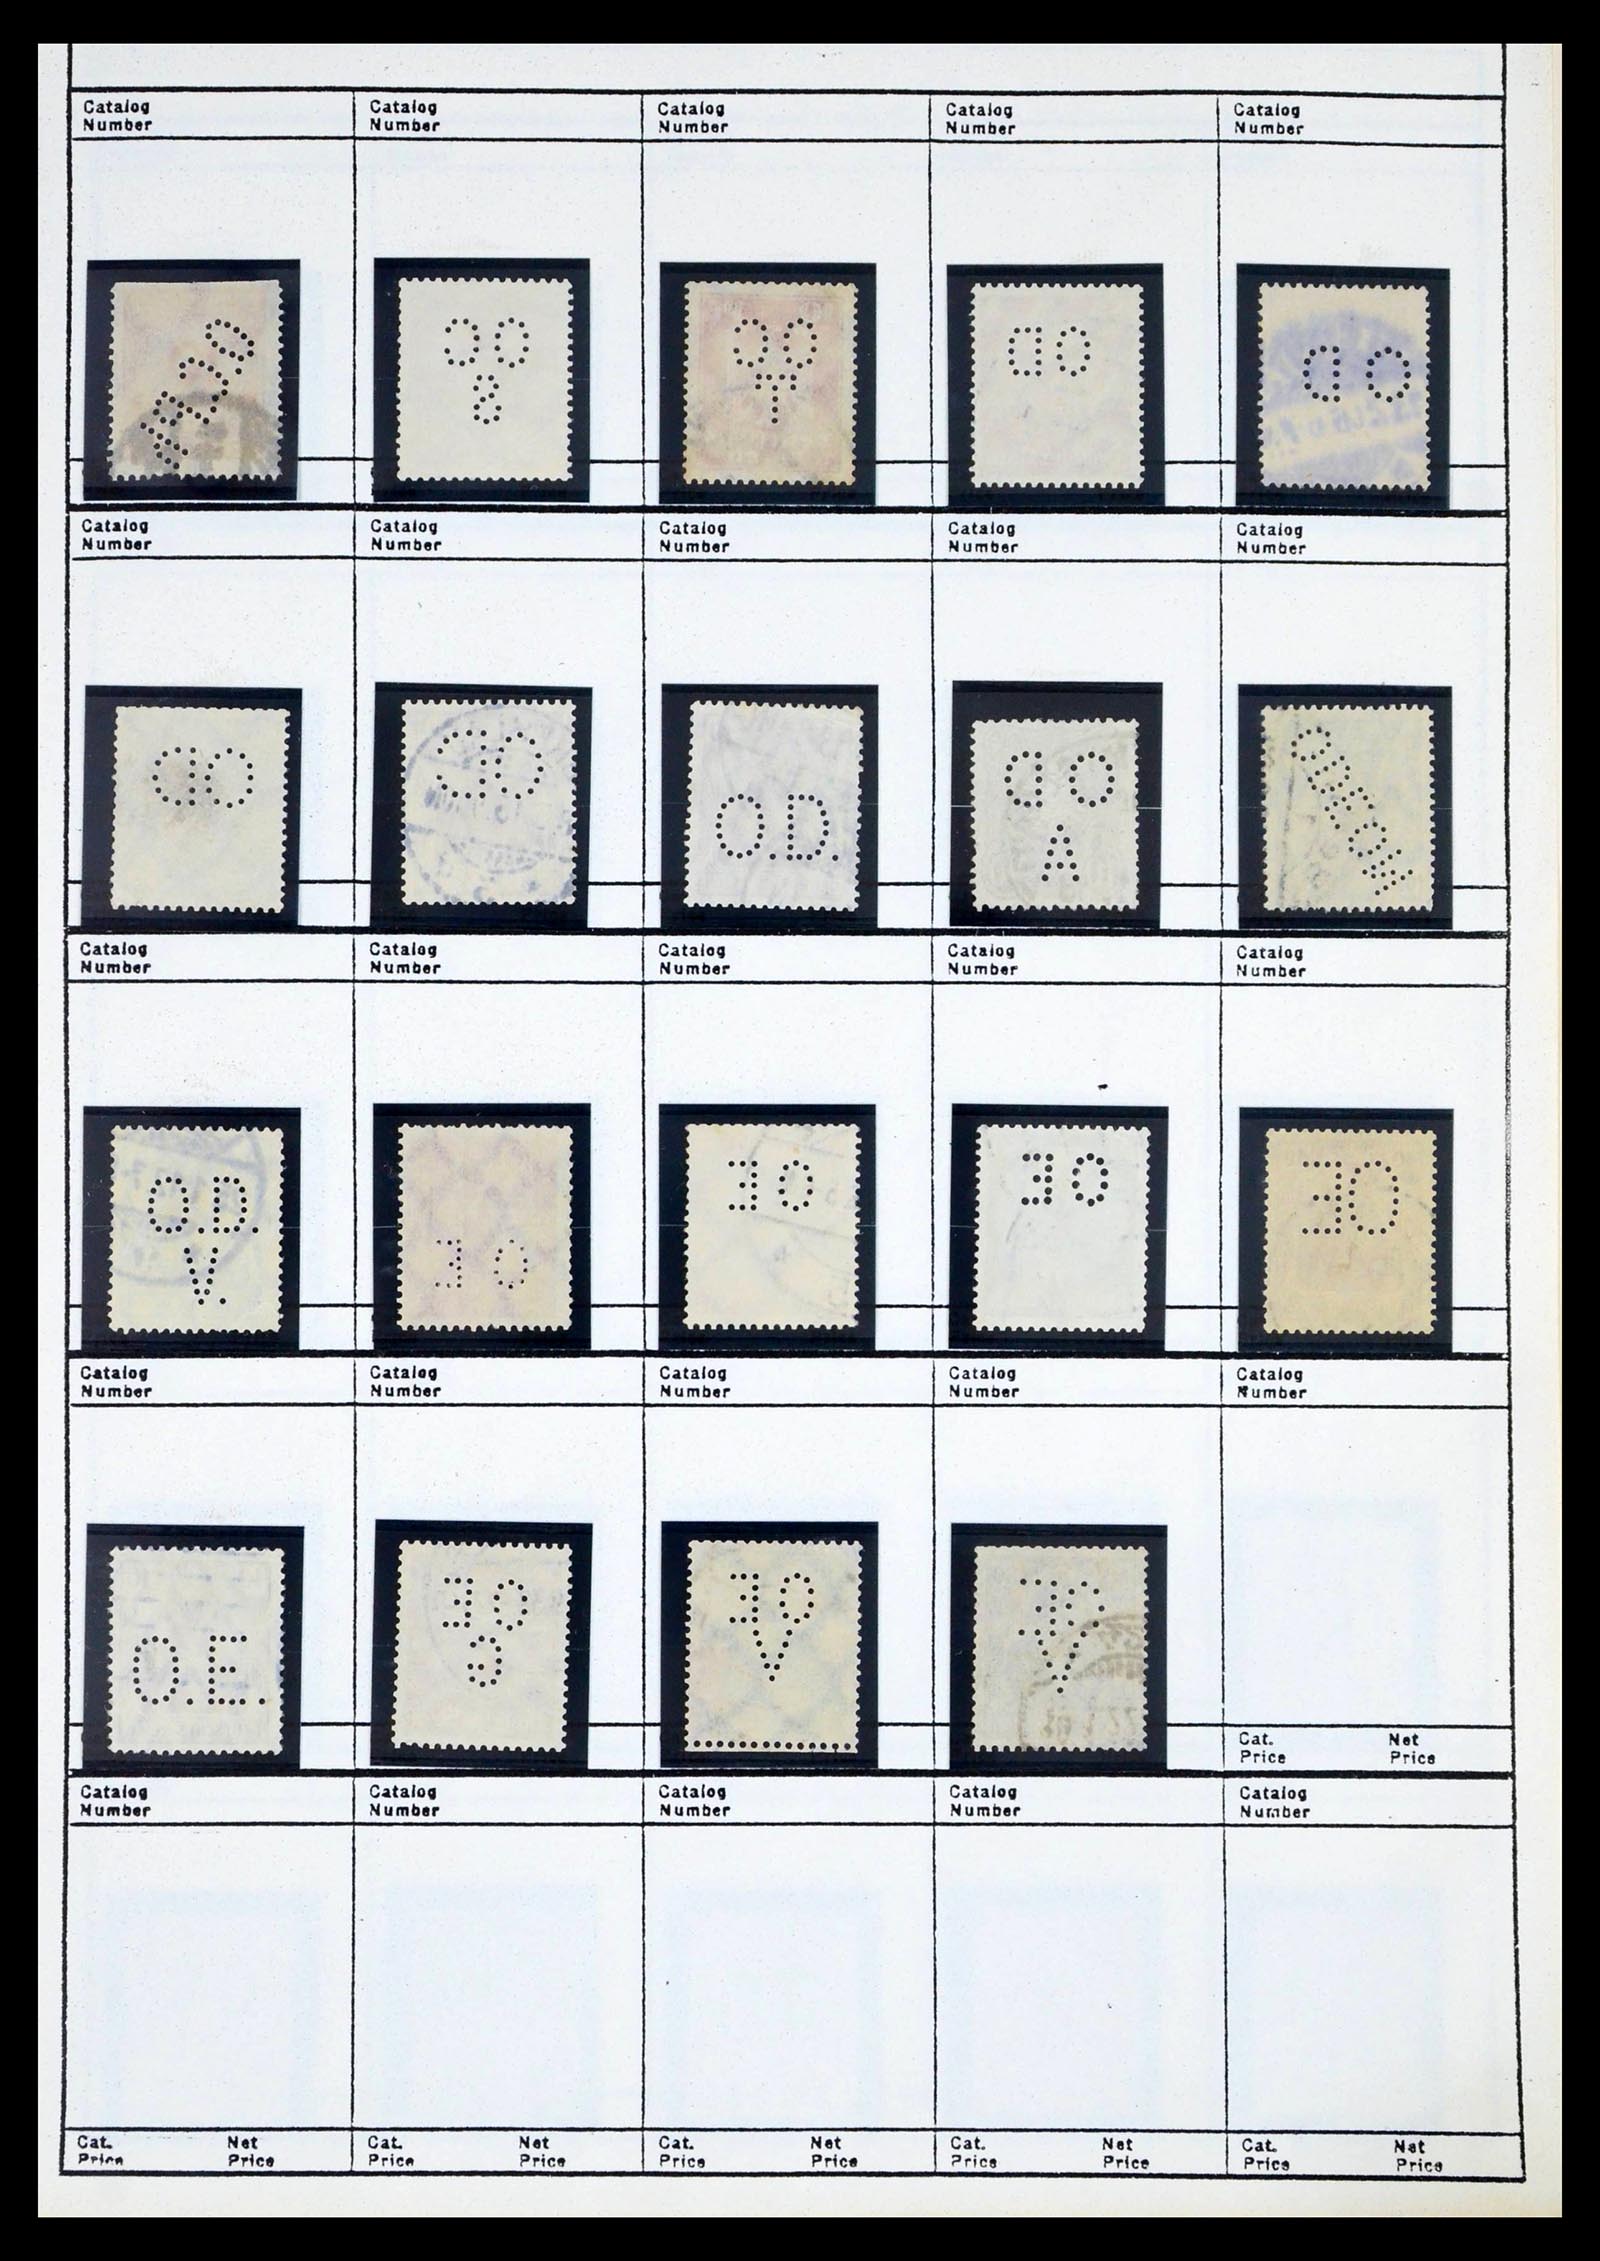 Catalog Number Catalog Number Catalog Number Catalog Number Catalog Number
OC
S
OC
T
OD
OD
Catalog Number Catalog Number Catalog Number Catalog Number Catalog Number
OD
O.D.
OD
A
Catalog Number Catalog Number Catalog Number Catalog Number Catalog Number
O.D.
V.
OE
OE
OE
OE
Catalog Number Catalog Number Catalog Number Catalog Number Catalog Number
O.E.
OE
G
OE
V
OE
V
Cat. Price Net Price
Catalog Number Catalog Number Catalog Number Catalog Number Catalog Number
Cat. Price Net Price Cat. Price Net Price Cat. Price Net Price Cat. Price Net Price Cat. Price Net Price